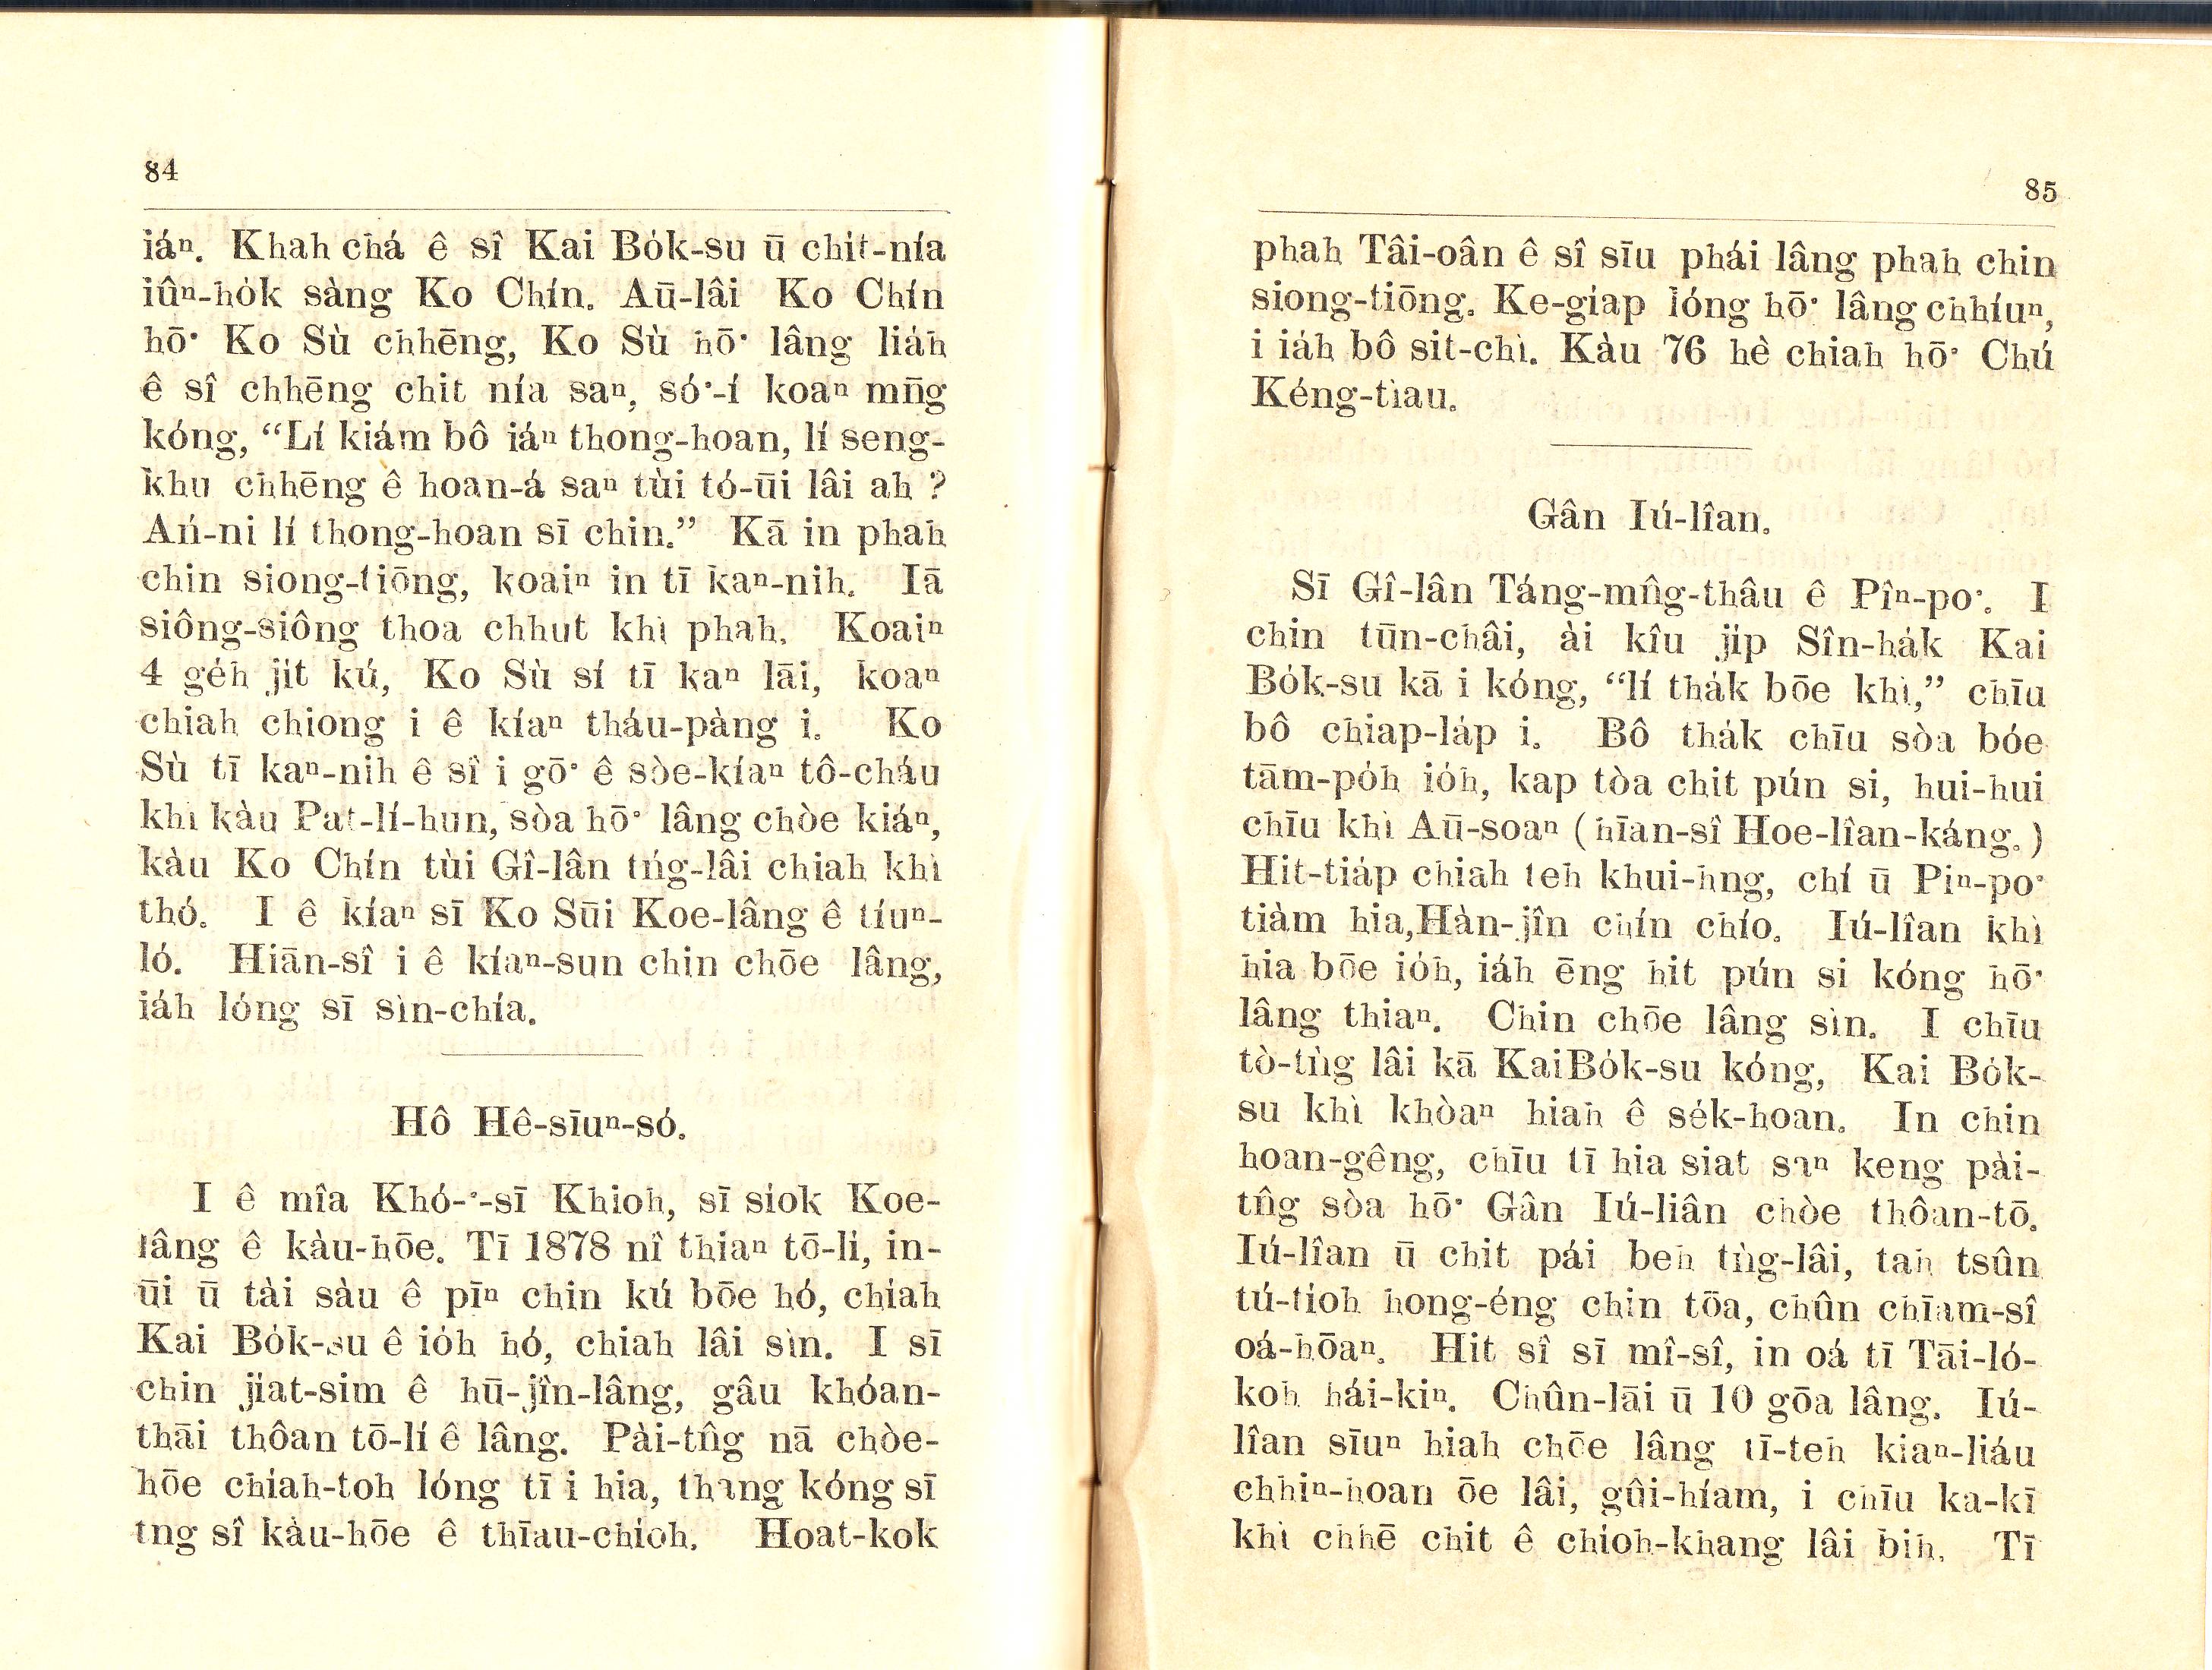 84
iáⁿ. Khah chá ê sî Kai Bo̍k-su ū chit-nía
iûⁿ-ho̍k sàng Ko Chín. Aū-lâi Ko Chín
hō͘ Ko Sù chhēng, Ko Sù hō͘ lâng lia̍h
ê sî chhēng chit nía saⁿ, só͘-í koaⁿ mn̄g
kóng, “Lí kiám bô iáⁿ thong-hoan, lí seng-
khu chhēng ê hoan-á saⁿ tùi tó-ūi lâi ah ?
Ań-ni lí thong-hoan sī chin.” Kā in phah
chin siong-tiōng, koaiⁿ in tī kaⁿ-nih. Iā
siông-siông thoa chhut khì phah. Koaiⁿ
4 ge̍h ji̍t kú, Ko Sù sí tī kaⁿ lāi, koaⁿ
chiah chiong i ê kíaⁿ tháu-pàng i. Ko
Sù tī kaⁿ-nih ê sî i gō͘ ê sòe-kíaⁿ tô-cháu
khì kàu Pat-lí-hun, sòa hō͘ lâng chòe kiáⁿ,
kàu Ko Chín tùi Gî-lân tńg-lâi chiah khì
thó. I ê kíaⁿ sī Ko Sūi Koe-lâng ê tíuⁿ-
ló. Hiān-sî i ê kíaⁿ-sun chin chōe lâng,
ia̍h lóng sī sìn-chía.
Hô Hê-sīuⁿ-só.
I ê mîa Khó-͘-sī Khioh, sī sio̍k Koe-
lâng ê kàu-hōe. Tī 1878 nî thiaⁿ tō-lí, in-
ūi ū tài sàu ê pīⁿ chin kú bōe hó, chiah
Kai Bo̍k-su ê io̍h hó, chiah lâi sìn. I sī
chin jia̍t-sim ê hū-jîn-lâng, gâu khóan-
thāi thôan tō-lí ê lâng. Pài-tn̂g nā chòe-
hōe chia̍h-toh lóng tī i hia, thang kóng sī
tng sî kàu-hōe ê thīau-chio̍h. Hoat-kok
85
phah Tâi-oân ê sî sīu phái lâng phah chin
siong-tiōng. Ke-giap lóng hō͘ lâng chhíuⁿ,
i ia̍h bô sit-chì. Kàu 76 hè chiah hō͘ Chú
Kéng-tiau.
Gân Iú-lîan.
Sī Gî-lân Táng-mn̂g-thâu ê Pîⁿ-po͘. I
chin tūn-châi, ài kîu ji̍p Sîn-ha̍k Kai
Bo̍k-su kā i kóng, “lí tha̍k bōe khì,” chīu
bô chiap-la̍p i. Bô tha̍k chīu sòa bóe
tām-po̍h io̍h, kap tòa chit pún si, hui-hui
chīu khì Aū-soaⁿ ( hīan-sî Hoe-lîan-káng. )
Hit-tia̍p chiah teh khui-hng, chí ū Piⁿ-po͘
tiàm hia,Hàn-jîn chín chío. Iú-lîan khì
hia bōe io̍h, ia̍h ēng hit pún si kóng hō͘
lâng thiaⁿ. Chin chōe lâng sìn. I chīu
tò-tǹg lâi kā KaiBo̍k-su kóng, Kai Bo̍k-
su khì khòaⁿ hiah ê se̍k-hoan. In chin
hoan-gêng, chīu tī hia siat saⁿ keng pài-
tn̂g sòa hō͘ Gân Iú-liân chòe thôan-tō.
Iú-lîan ū chit pái beh tǹg-lâi, tah tsûn
tú-tioh hong-éng chin tōa, chûn chīam-sî
oá-hōaⁿ. Hit sî sī mî-sî, in oá tī Tāi-ló-
koh hái-kiⁿ. Chûn-lāi ū 10 gōa lâng. Iú-
lîan sīuⁿ hiah chōe lâng tī-teh kiaⁿ-liáu
chhiⁿ-hoan ōe lâi, gûi-híam, i chīu ka-kī
khì chhē chit ê chio̍h-khang lâi bih. Tī